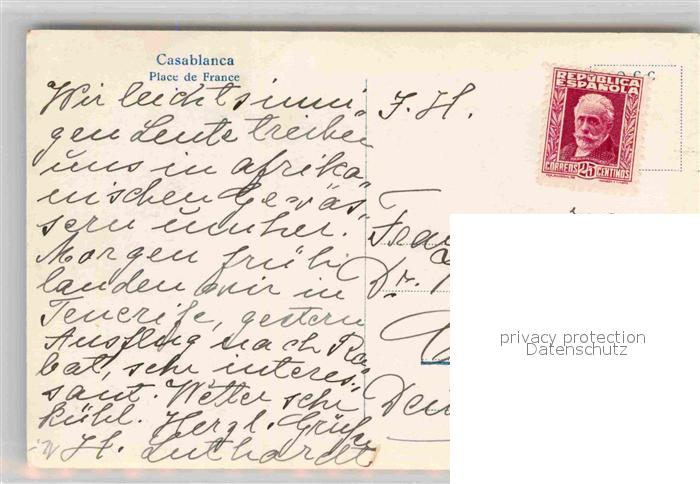 Casablanca
Place de France
Wir leichtsinni-
gen Leute treiben
uns in afrika-
nischen Gewäs-
sern umher.
Morgen früh
landen wir in
Tenerife, gestern
Ausflug nach Ra-
bat, sehr interes-
sant. Wetter sehr
kühl. Herzl. Grüße
H. Luthardt
REPÚBLICA
ESPAÑOLA
CORREOS 25 CENTIMOS
Frau
Dr.
privacy protection
Datenschutz